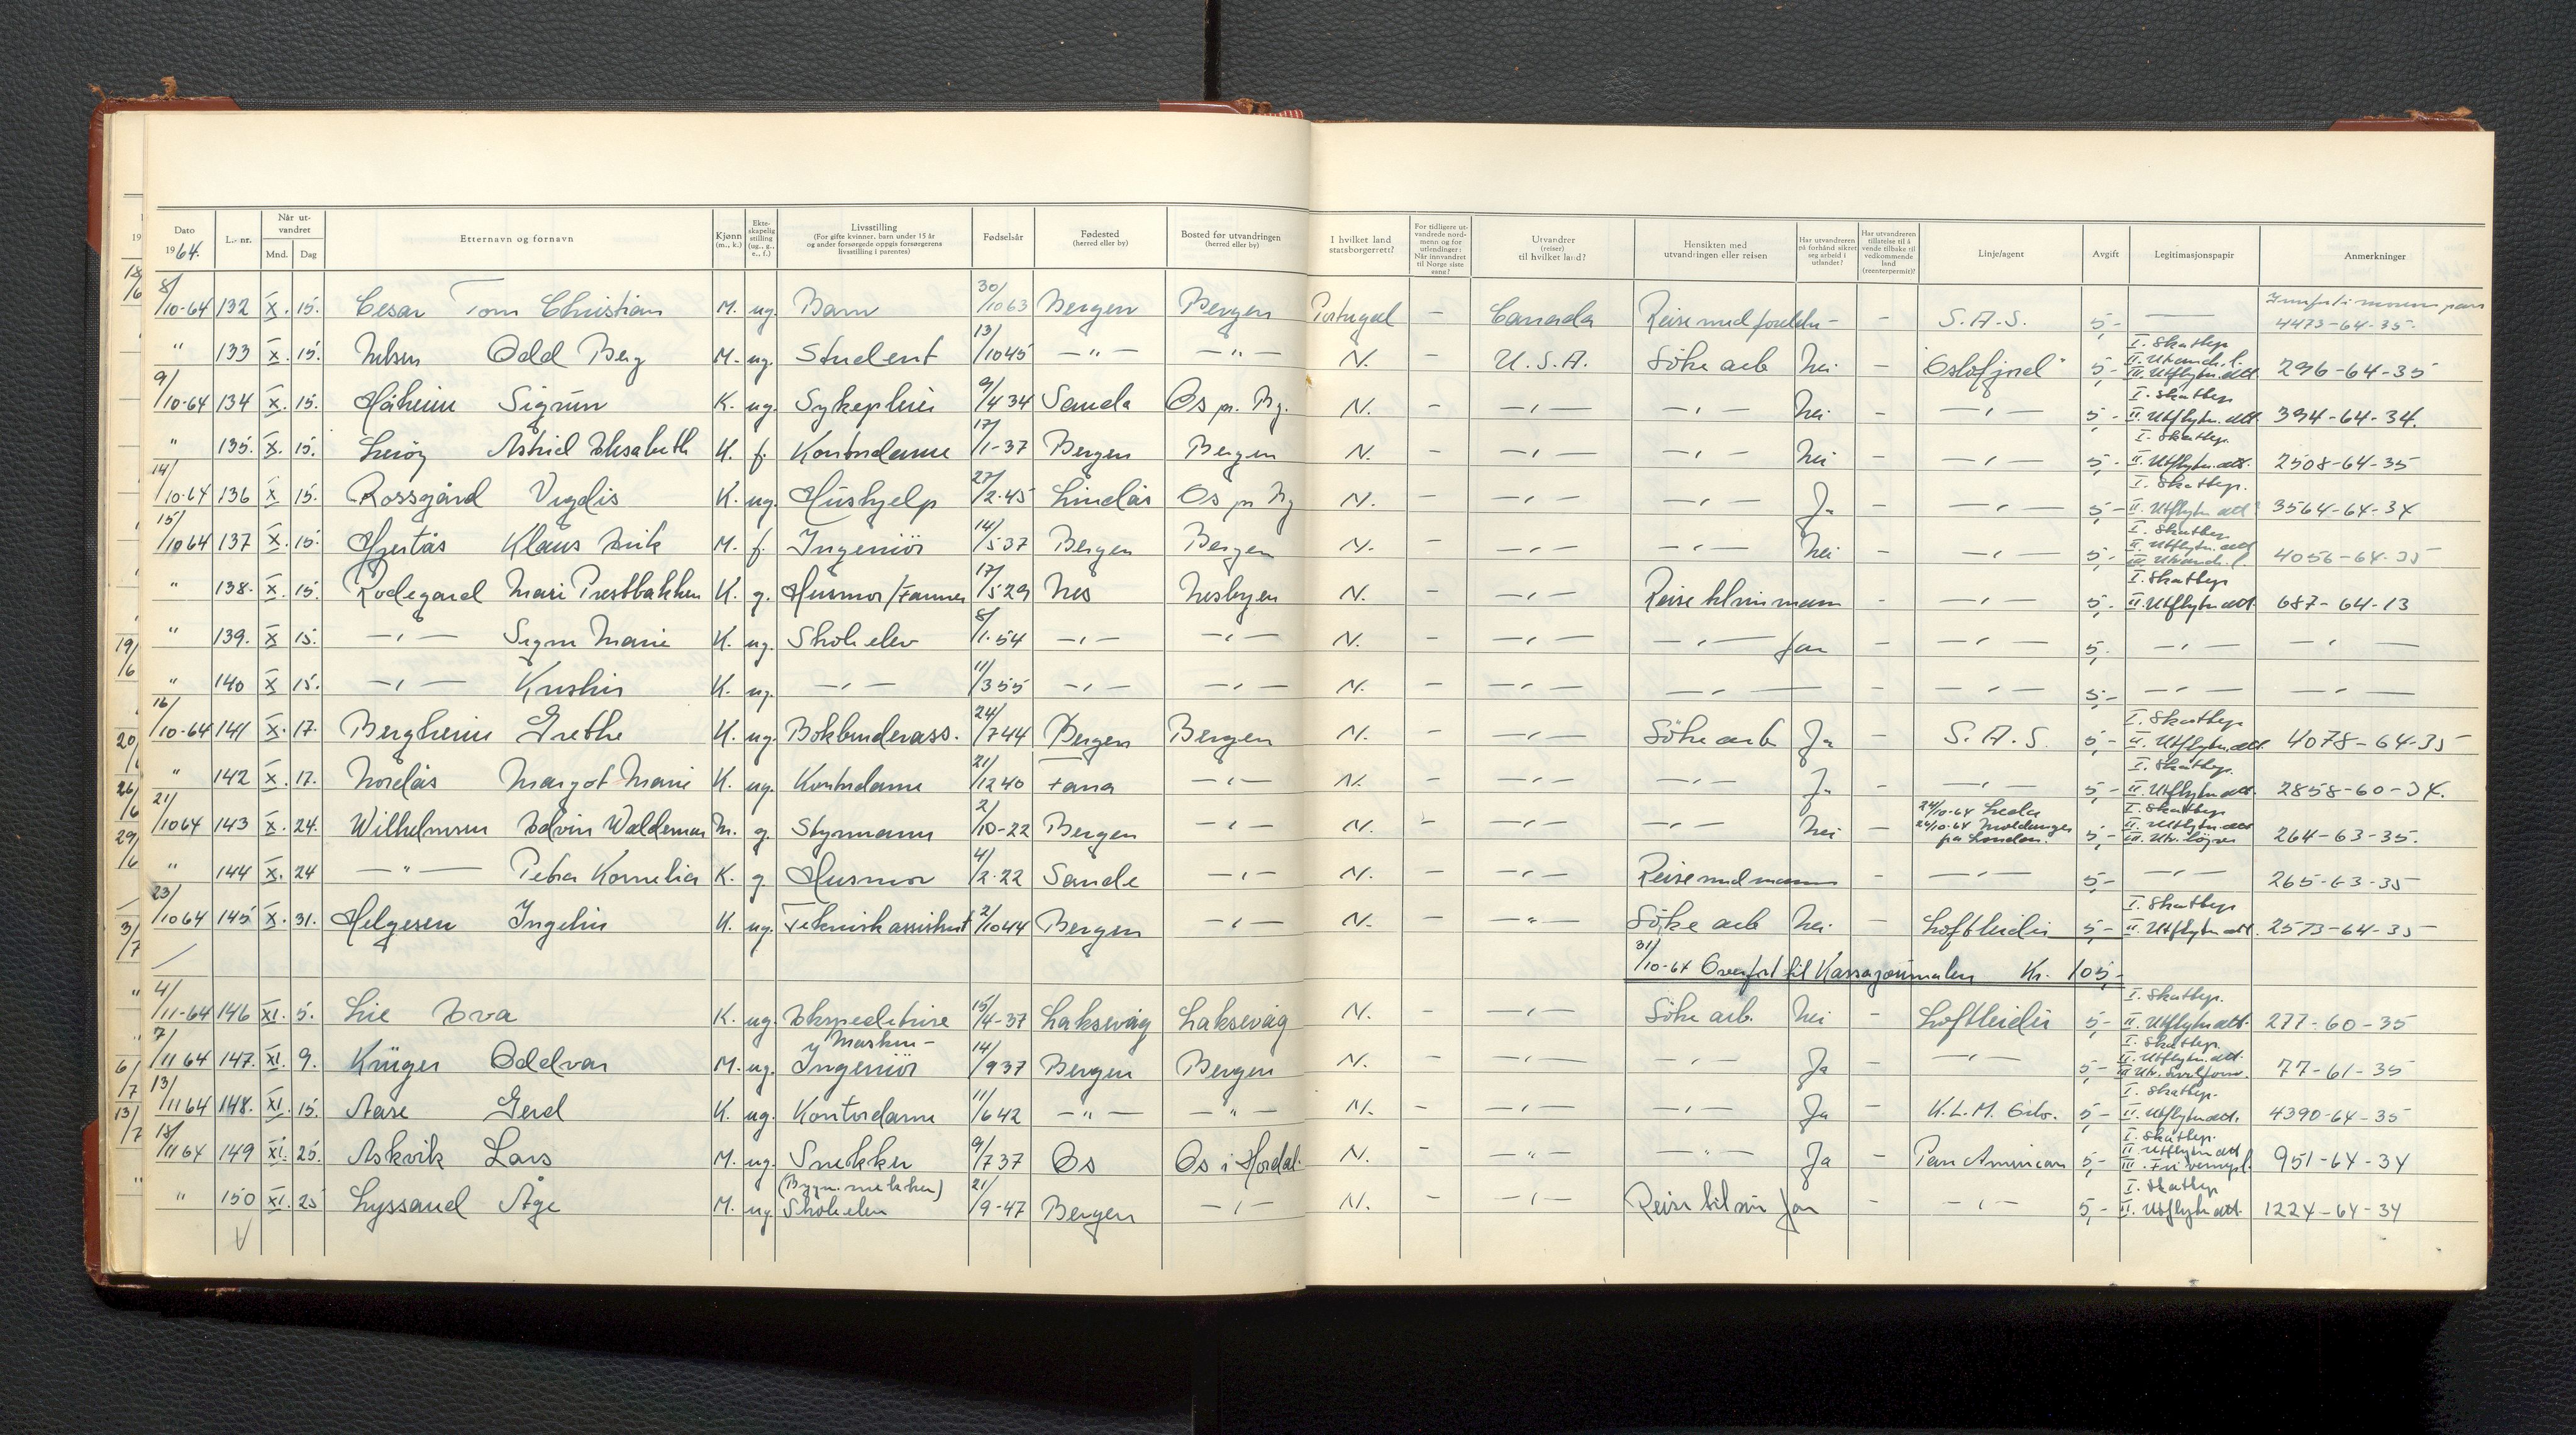 Dato 1964. L.-nr. Når utvandret Mnd. Dag Etternavn og fornavn Kjønn (m., k.) Ekteskapelig stilling (ug., g., e., f.) Livsstilling (For gifte kvinner, barn under 15 år og andre forsørgede oppgis forsørgerens livsstilling i parentes) Fødselsår Fødested (herred eller by) Bosted før utvandringen (herred eller by) I hvilket land statsborgerrett? For tidligere utvandrede nordmenn og for utlendinger: Når innvandret til Norge siste gang? Utvandrer (reiser) til hvilket land? Hensikten med utvandringen eller reisen Har utvandreren på forhånd sikret seg arbeid i utlandet? Har utvandreren tillatelse til å vende tilbake til vedkommende land (reenterpermit)? Linje/agent Avgift Legitimasjonspapir Anmerkninger
8/10-64 132 X. 15. Cesar Tom Christian M. ug. Barn 30/10 63 Bergen Bergen Portugal - Canada Reise med foreldre - - S.A.S. 5,- — 4473-64-35.
" 133 X. 15. Odd Berg M. ug. Student 13/10 45 —"— —"— N. - U.S.A. Söke arb Nei - Oslofjord 5,- I. Skattep II. Utvandr.l. III. Utflytn.att 296-64-35
9/10-64 134 X. 15. Håheim Sigrun K. ug. Sykepleier 9/4 34 Sanda Os pr. Bg. N. - —"— —"— Nei - —"— 5,- I. Skattep II. Utflytn.att. 394-64-34.
" 135. X. 15. Lerøy Astrid Elisabeth K. f. Kontordame 17/1-37 Bergen Bergen N. - —"— —"— Nei - —"— 5,- I. Skattep. II. Utflytn.att. 2508-64-35
14/10-64 136 X 15. Rossgård Vigdis K. ug. Hushjelp 27/2-45 Lindås Os pr Bg N. - —"— —"— Ja - —"— 5,- I. Skattep. II. Utflytn att 3564-64-34
15/10 64 137 X. 15. Hjertås Klaus Erik M. f. Ingeniör 14/5 37 Bergen Bergen N. - —"— —"— Nei - —"— 5,- I. Skattep II. Utflytn.att III. Utvandr.l. 4056-64-35
" 138. X. 15. Rodegard Mari Prestbakken K. g. Husmor/Farmer 17/5 29 Nes Nesbyen N. - —"— Reise til sin mann - —"— 5,- I. Skattep II. Utflytn att 687-64-13
" 139. X 15. —"— Signe Marie K. ug. Skoleelev 8/1-54 —"— —"— N. - —"— —"— far - —"— 5,- —"— —"—
" 140 X 15. —"— Kirstin K. ug. —"— 11/3 55 —"— —"— N. - —"— —"— - —"— 5,- —"— —"—
16/10-64 141 X. 17. Bergheim Grethe K. ug. Bokbinderass. 24/7 44 Bergen Bergen N. - —"— Söke arb Ja - S.A.S. 5,- I. Skattep II. Utflytn.att. 4078-64-35
" 142 X. 17. Nordås Margot Marie K. ug. Kontordame 21/12 40 Fana —"— N. - —"— —"— Ja - —"— 5,- I. Skattep. II. Utflytn att. 2858-60-34.
21/10 64 143 X. 24. Wilhelmsen Edvin Waldemar M. g. Styrmann 2/10-22 Bergen —"— N. - —"— —"— Nei - 24/10-64 Leda 26/10-64 Moldanger fra London. 5,- I. Skattep II. Utflytn att III. Utv. löyve 264-63-35.
" 144 X. 24 —"— Petra Kornelia K. g. Husmor 4/2-22 Sande —"— N. - —"— Reise med mann - —"— 5,- —"— 265-63-35
23/10 64 145 X. 31. Helgesen Ingelin K. ug. Teknisk assistent 2/10 44 Bergen —"— N. - —"— Söke arb Nei - Loftleidir 5,- I. Skattep II. Utflytn att. 2573-64-35
31/10-64 Overfört til Kassajournalen Kr. 105,-
4/11-64 146 XI. 5. Lie Eva K. ug. Ekspeditrise 15/4-37 Laksevåg Laksevåg N. - —"— Söke arb. Nei - Loftleidir 5,- I. Skattep. II. Utflytn att. 277-60-35
7/11 64 147. XI. 9. Krüger Oddvar M. ug. Maskin-Ingeniör 14/9 37 Bergen Bergen N. - —"— —"— Ja - —"— 5,- I. Skattep. II. Utflytn.att. 77-61-35
13/11 64 148. XI. 15. Aase Gerd K. ug. Kontordame 11/6 42 —"— —"— N. - —"— —"— Ja - K.L.M. 5,- I. Skattep. II. Utflytn att. 4390-64-35
18/11 64 149 XI. 25. Askvik Lars M. ug. Snekker 9/7 37 Os Os i Hordal. N. - —"— —"— Ja - Pan American 5,- I. Skattep. II Utflytn att III. Fri vernepl. 951-64-34
" 150 XI. 25 Lyssand Åge M. ug (Bygn.snekker) Skoleelev 21/9-47 Bergen —"— N. - —"— Reise til sin far - —"— 5,- I. Skattep II. Utflytn att. 1224-64-34